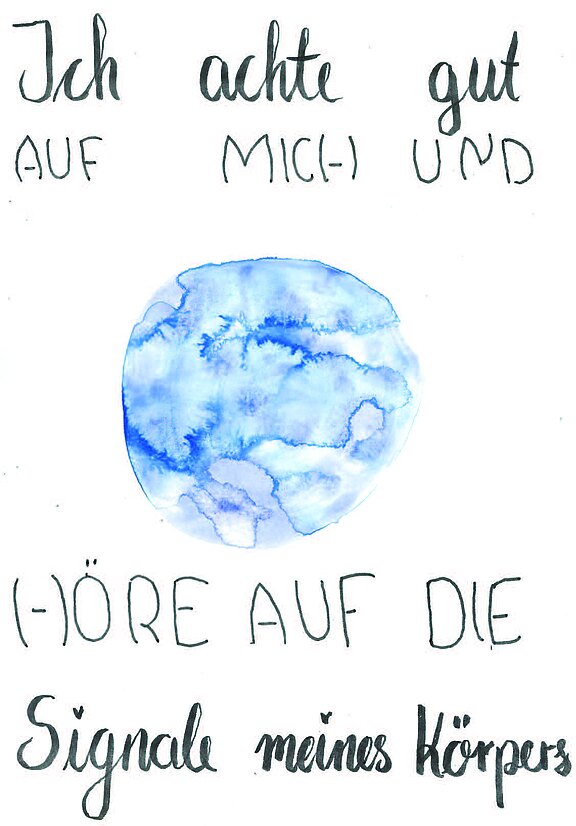 Ich achte gut
AUF MICH UND
HÖRE AUF DIE
Signale meines Körpers